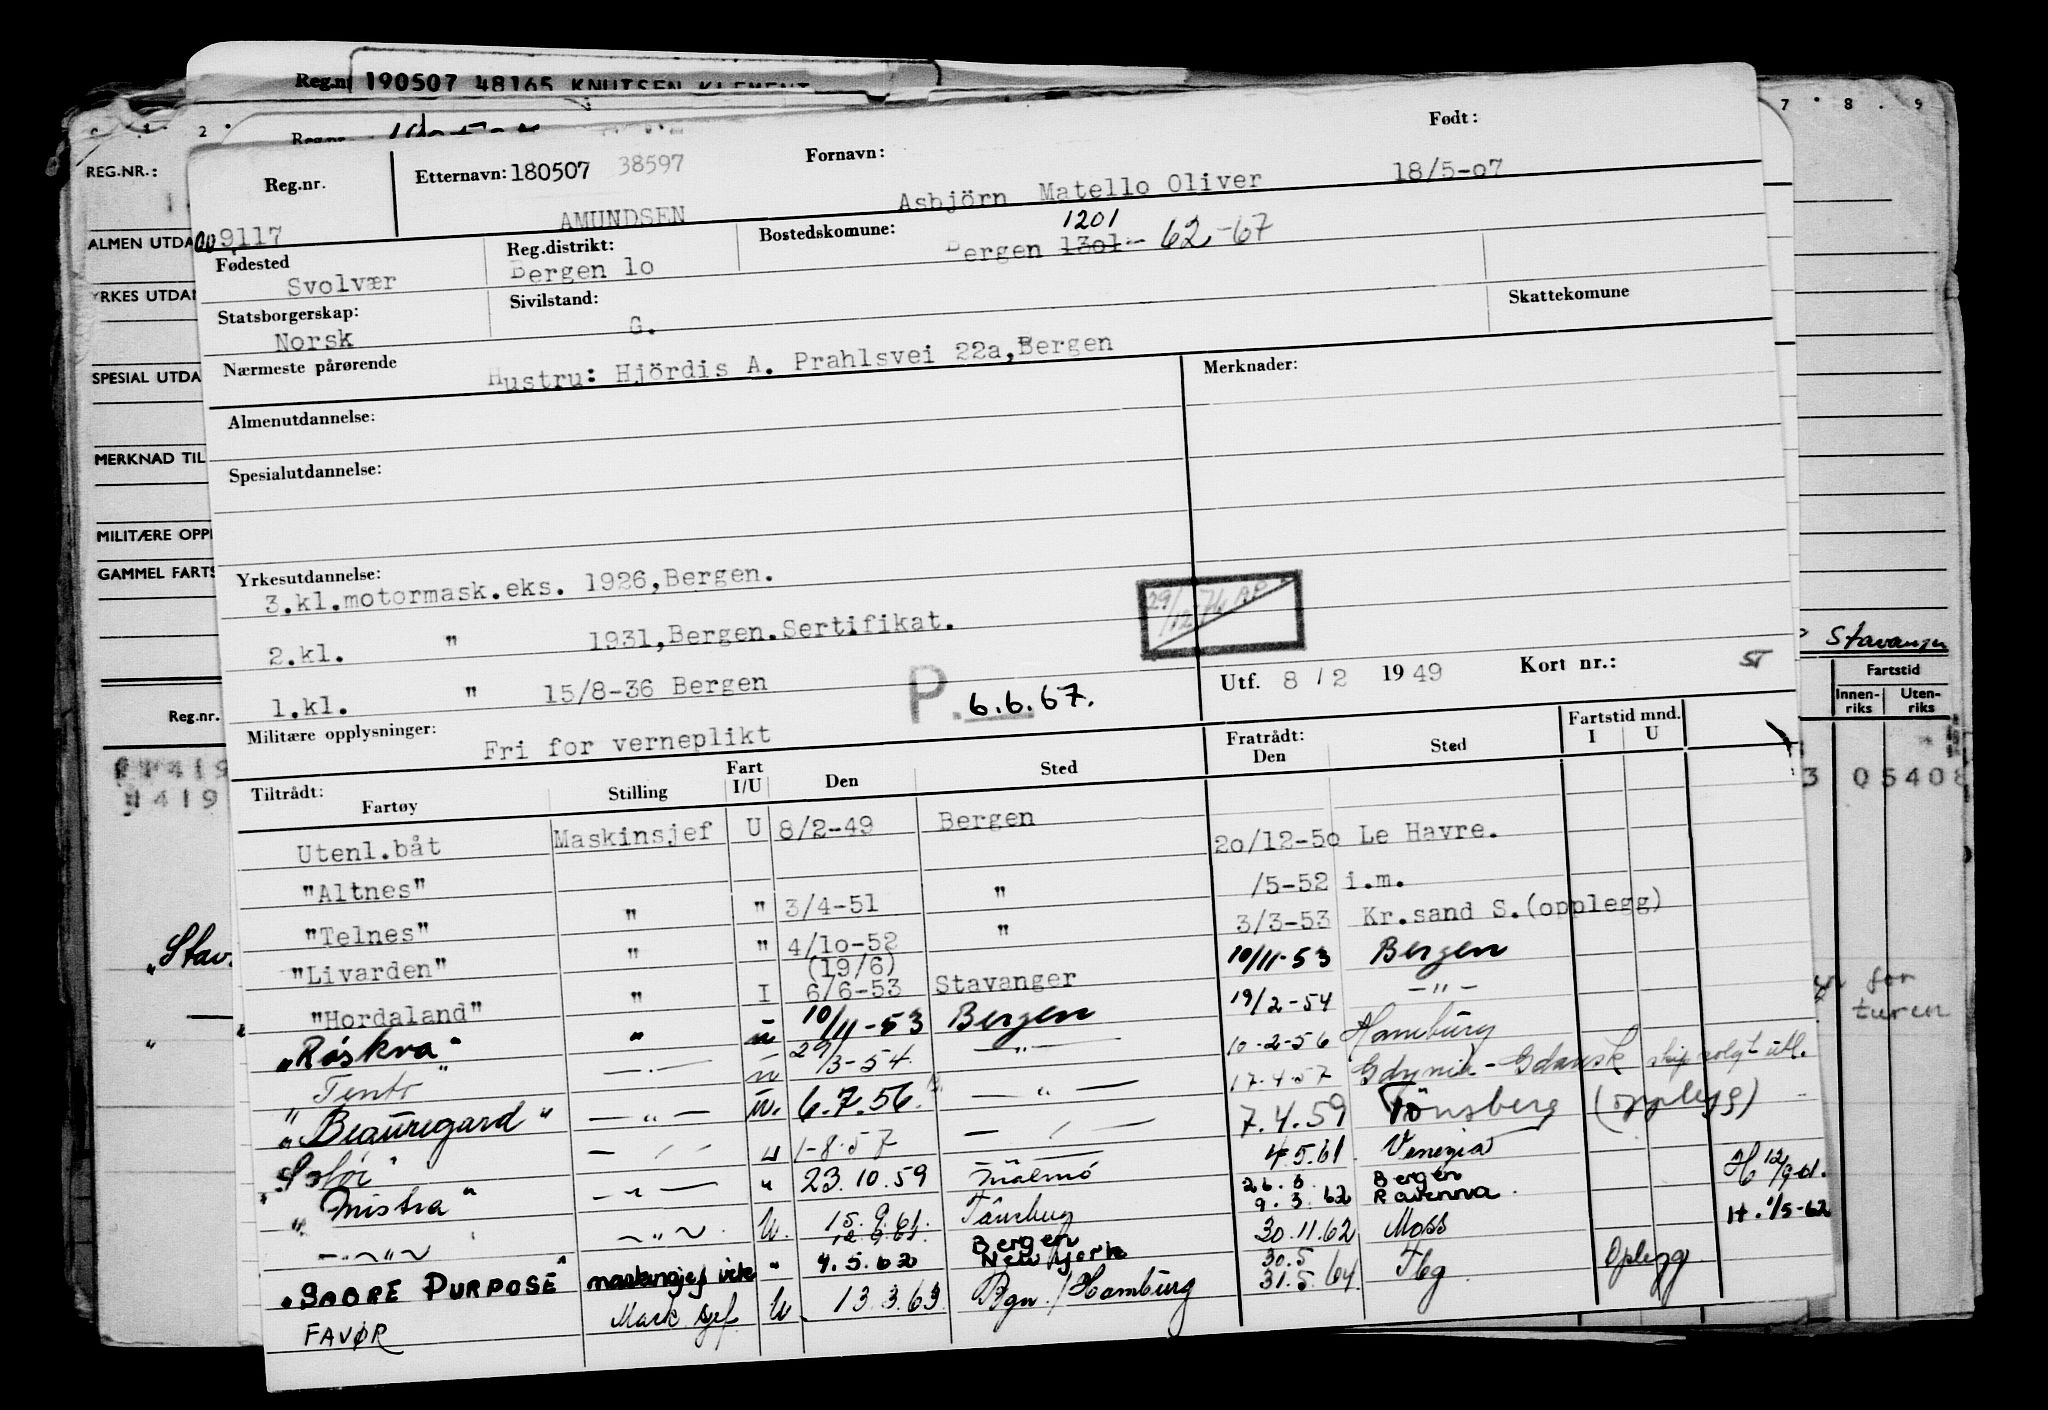 Reg.nr 190507 48165 KNUTSEN KLEMENT
2 7 8 9
Reg.nr.
REG.NR.:
ALMEN UTDA
YRKES UTDAN
SPESIAL UTDA
MERKNAD TIL
MILITÆRE OPPL
GAMMEL FARTS
Reg.nr.
419
4419
"Stav.
Stavanger
Fartstid
Innen-riks Uten-riks
3 05408
for
turen
Reg.nr. Etternavn: 180507 38597 Fornavn: Født:
009117 AMUNDSEN Asbjörn Matello Oliver 18/5-07
Fødested Reg.distrikt: Bostedskomune: 1201
Svolvær Bergen 10 Bergen 1301- 62-67
Statsborgerskap: Sivilstand: Skattekomune
Norsk G.
Nærmeste pårørende Hustru: Hjördis A. Prahlsvei 22a, Bergen
Merknader:
Almenutdannelse:
Spesialutdannelse:
Yrkesutdannelse:
3.kl.motormask.eks. 1926, Bergen.
2.kl. " 1931, Bergen. Sertifikat.
29/12-76 AP
1.kl. " 15/8-36 Bergen
P. 6.6.67.
Utf. 8 / 2 1949 Kort nr.: 5
Militære opplysninger: Fri for verneplikt
Tiltrådt: Fartøy Stilling Fart I/U Den Sted Fratrådt: Den Sted Fartstid mnd. I U
Utenl.båt Maskinsjef U 8/2-49 Bergen 20/12-50 Le Havre.
"Altnes" " " 3/4-51 " /5-52 i.m.
"Telnes" " " 4/10-52 " 3/3-53 Kr.sand S.(opplegg)
"Livarden" " I (19/6) 6/6-53 Stavanger 10/11-53 Bergen
"Hordaland" " u 10/11-53 Bergen 19/2-54 -"-
"Röskva" -"- u 29/3-54 -"- 10-2-56 Hamburg
"Tento" -"- u. 6.7.56. -"- 17.4.57 Gdynia-Gdansk skip solgt utl.
"Beauregard" -"- u 1-8-57 -"- 7.4.59 Tönsberg (opplegg)
"Solör" -"- " 23.10.59 Malmö 4.5.61 Venezia
"Mistra" -"- U. 15.9.61. 12.9.61. Tönsberg Bergen 26.3 9.3.62 Bergen Ravenna. H 12/9-61.
-"- maskinsjef vik " 4.5.62 New York 30.11.62 Moss H. 1/5-62
"SABRE PURPOSE" Mask.sjef U. 13.3.63. Bgn./Hamburg 30.5 31.5.64. Tbg Oplegg
FAVØR